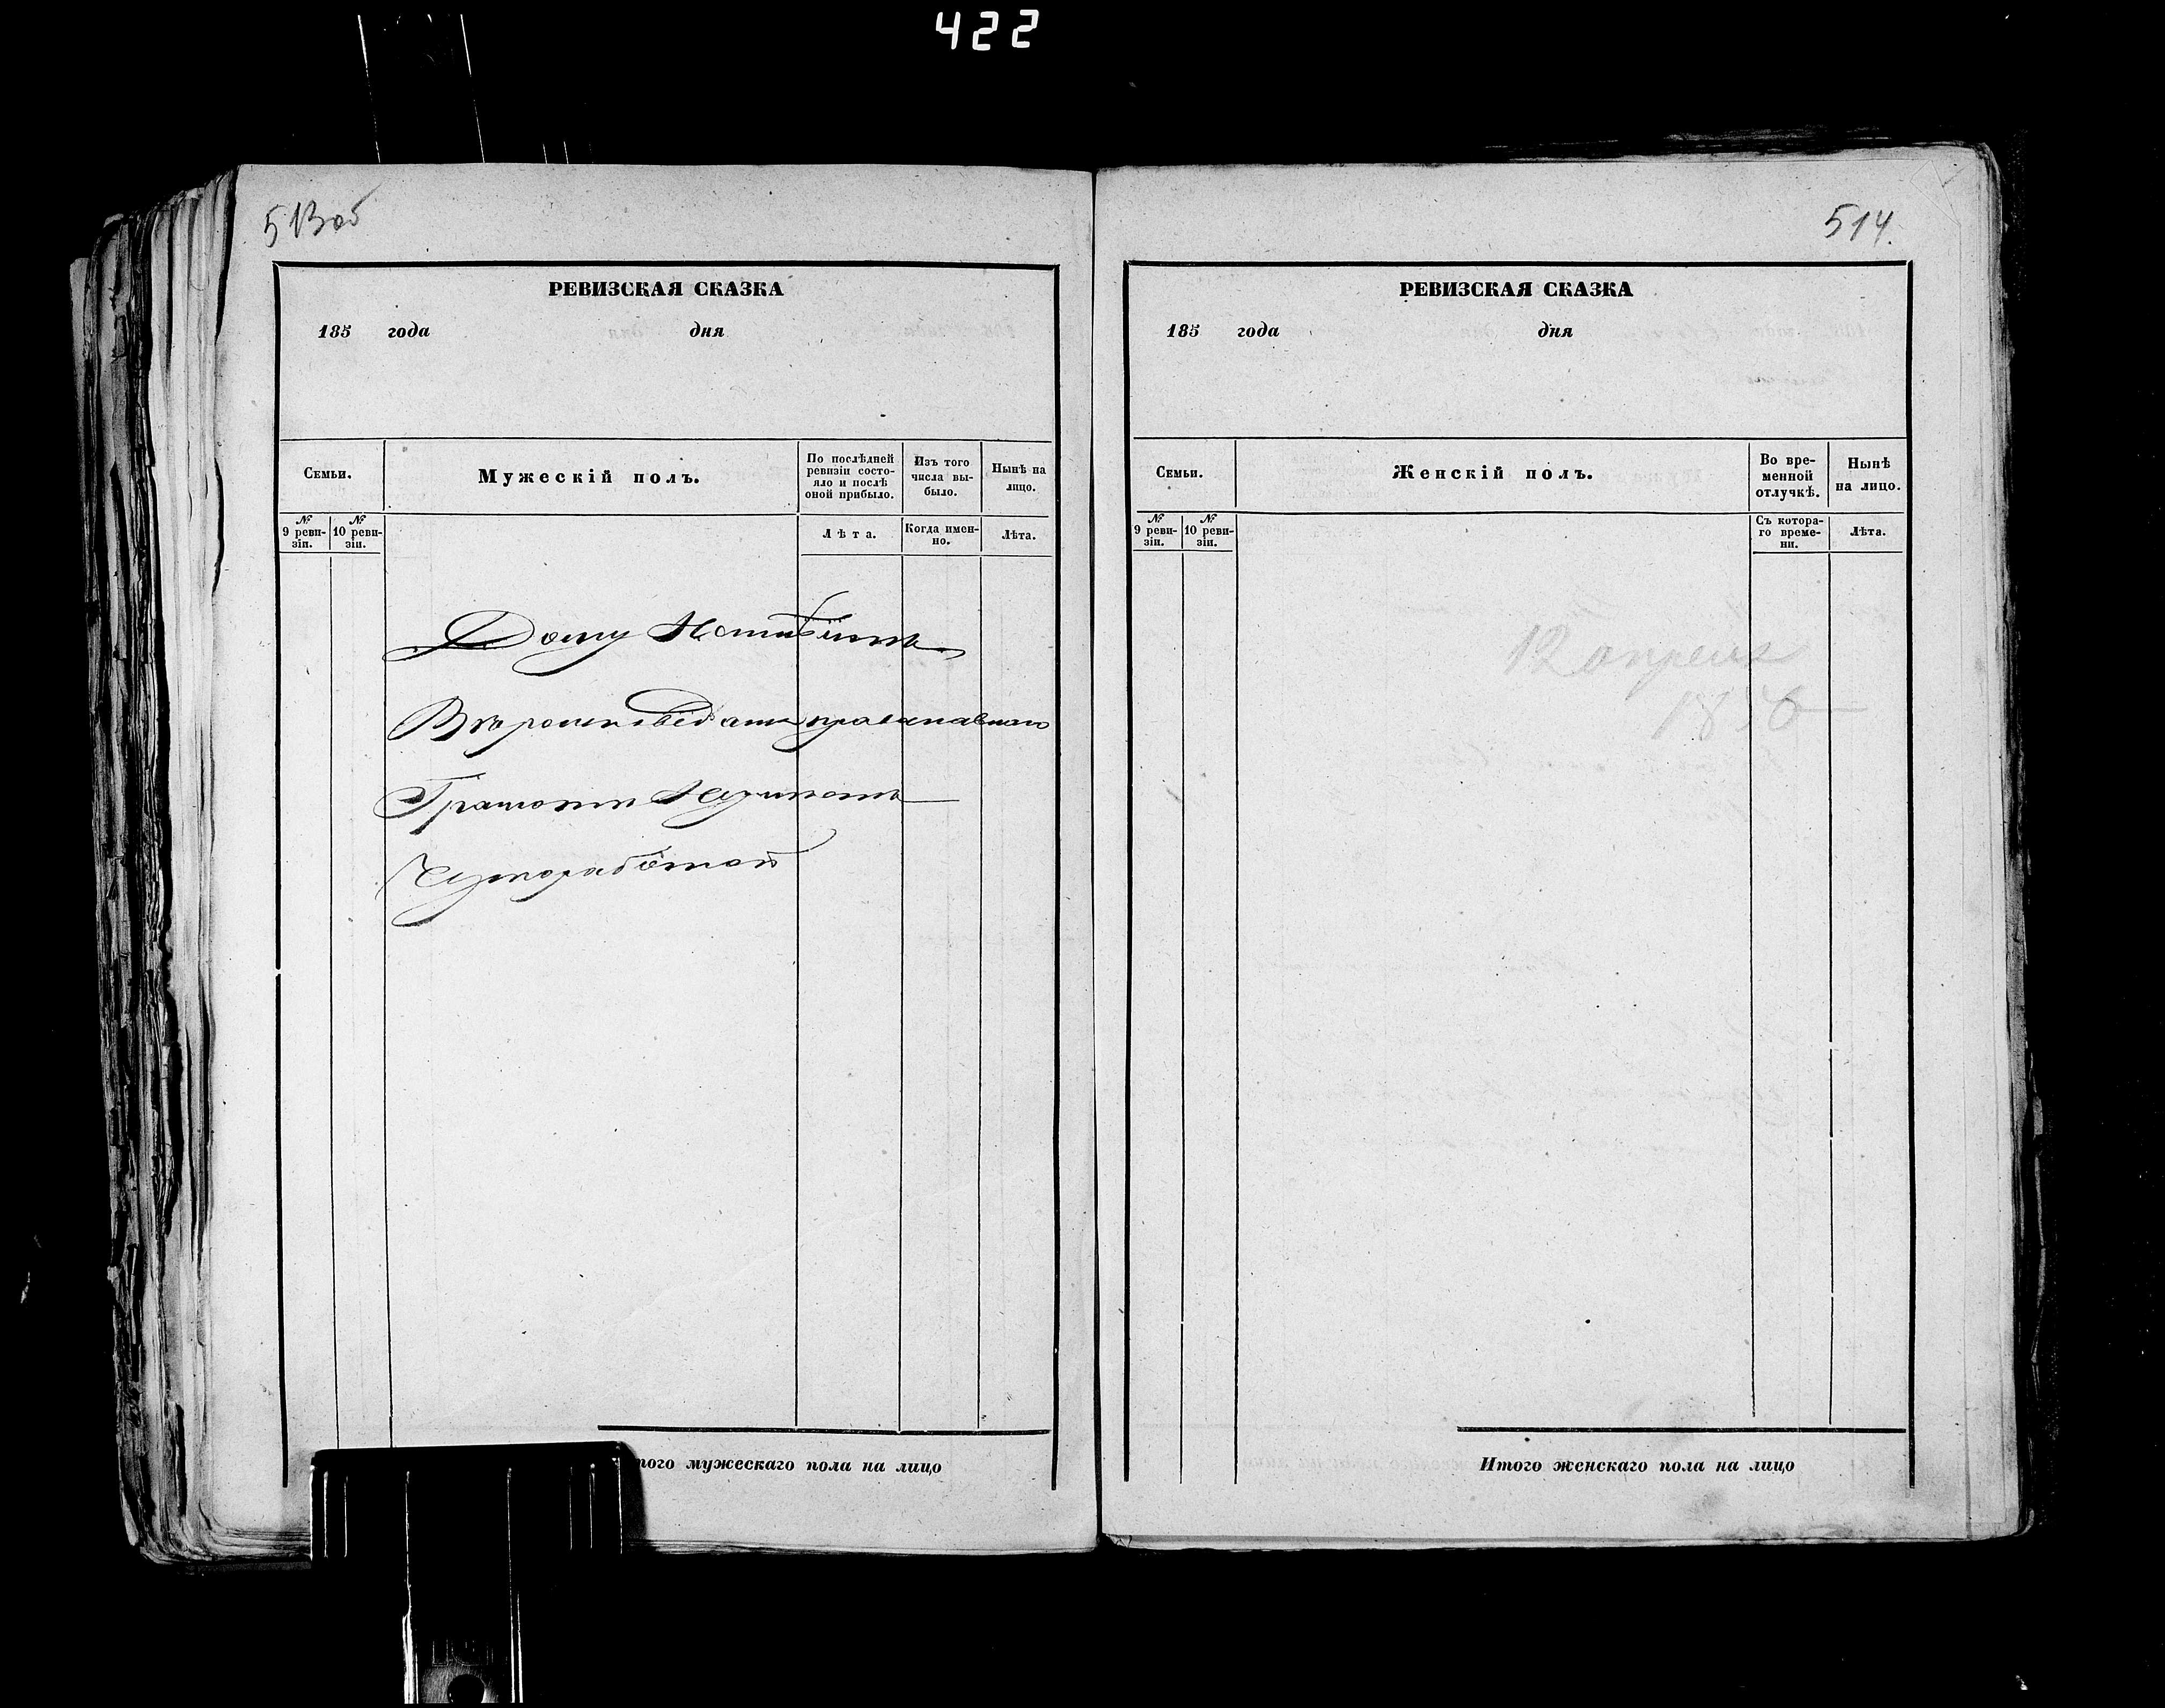 422
513 об
РЕВИЗСКАЯ СКАЗКА
185 года дня
Семьи.
Мужескій полъ.
По послѣдней ревизіи состо-
яло и послѣ оной прибыло.
Изъ того числа вы-
было.
Нынѣ на лицо.
№ 9 реви-
зіи.
№ 10 реви-
зіи.
Лѣта.
Когда имен-
но.
Лѣта.
Дому Неимѣитъ
Вѣроисповѣданія православнаго
Грамоти Неучиномъ
Итого мужескаго пола на лицо
514.
РЕВИЗСКАЯ СКАЗКА
185 года дня
Семьи.
Женскій полъ.
Во вре-
менной
отлучкѣ.
Нынѣ
на лицо.
№ 9 реви-
зіи.
№ 10 реви-
зіи.
Съ котора-
го време-
ни.
Лѣта.
12 апреля
1856
Итого женскаго пола на лицо